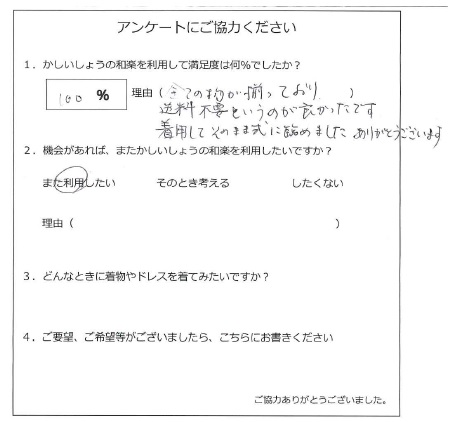 アンケートにご協力ください
1．かしいしょうの和楽を利用して満足度は何%でしたか？
100 %
理由（全ての物が揃っており）
送料不要というのが良かったです
着用してそのまま式に臨めました ありがとうございます
2．機会があれば、またかしいしょうの和楽を利用したいですか？
また利用したい そのとき考える したくない
理由（ ）
3．どんなときに着物やドレスを着てみたいですか？
4．ご要望、ご希望等がございましたら、こちらにお書きください
ご協力ありがとうございました。